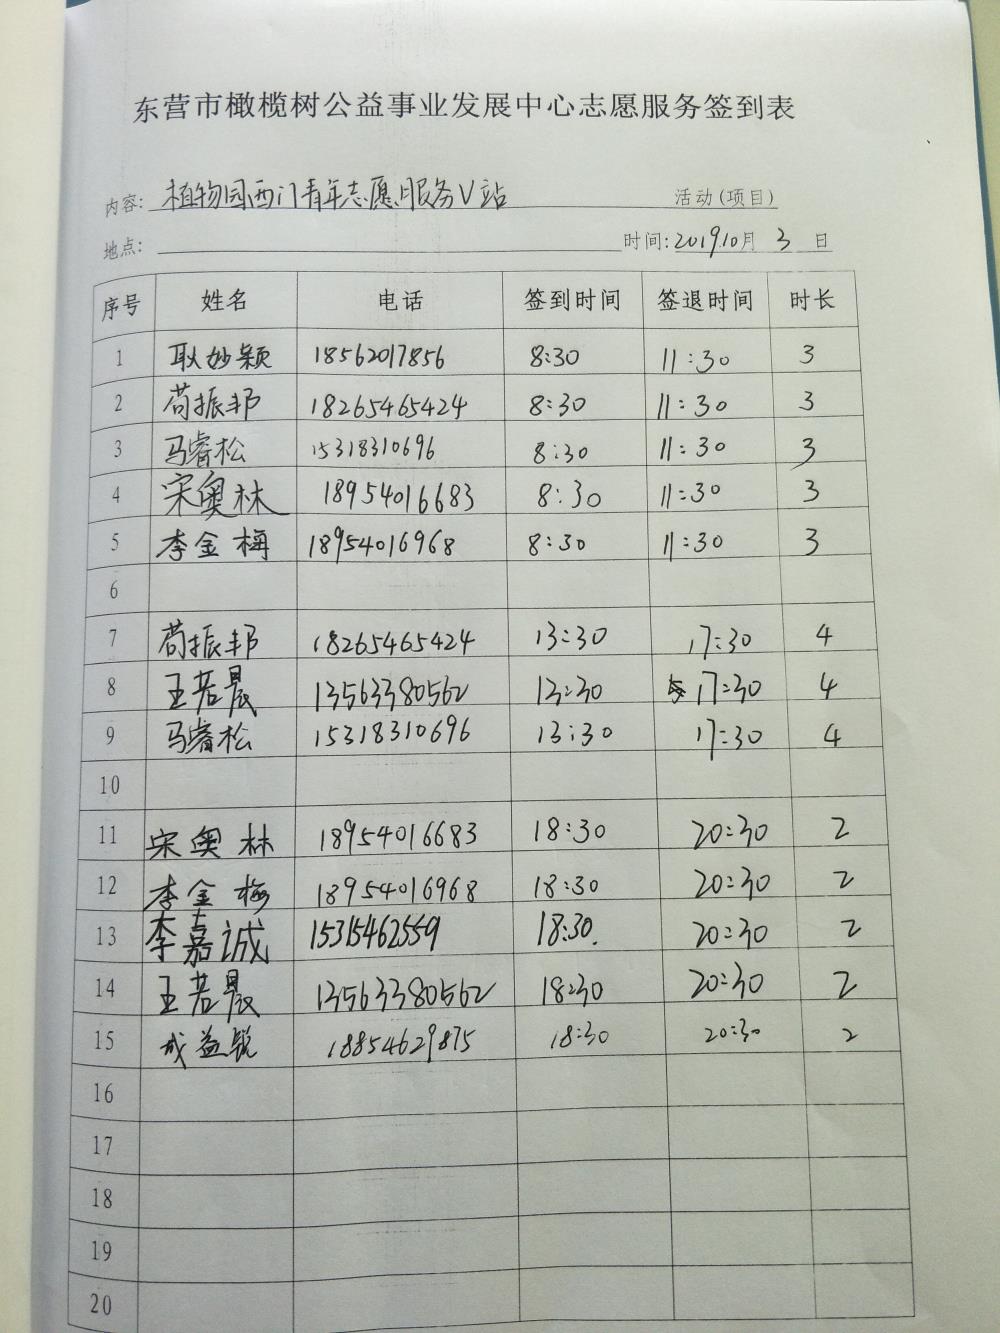 东营市橄榄树公益事业发展中心志愿服务签到表
内容: 植物园西门青年志愿服务V站 活动(项目)
地点: 时间: 2019.10月 3 日
序号 姓名 电话 签到时间 签退时间 时长
1 耿妙颖 18562017856 8:30 11:30 3
2 苟振邦 18265465424 8:30 11:30 3
3 马睿松 15318310696 8:30 11:30 3
4 宋奥林 18954016683 8:30 11:30 3
5 李金梅 18954016968 8:30 11:30 3
6
7 苟振邦 18265465424 13:30 17:30 4
8 王若晨 13563380562 13:30 17:30 4
9 马睿松 15318310696 13:30 17:30 4
10
11 宋奥林 18954016683 18:30 20:30 2
12 李金梅 18954016968 18:30 20:30 2
13 李嘉诚 15315462559 18:30. 20:30 2
14 王若晨 13563380562 18:30 20:30 2
15 成益锐 18854629875 18:30 20:30 2
16
17
18
19
20